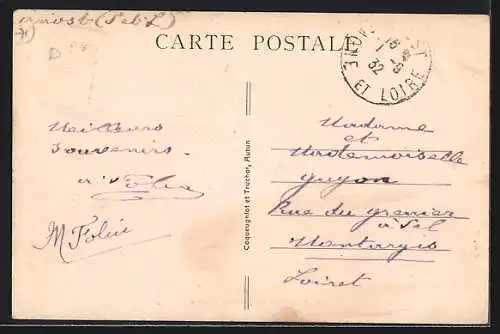 (S et L)
CARTE POSTALE
15 
1 -8
32
ET LOIRE
Meilleurs
souvenirs.
Coqueugniot et Truchot, Autun
Madame
et
Mademoiselle
Guyon
Rue du grenier
à Sel
Montargis
Loiret